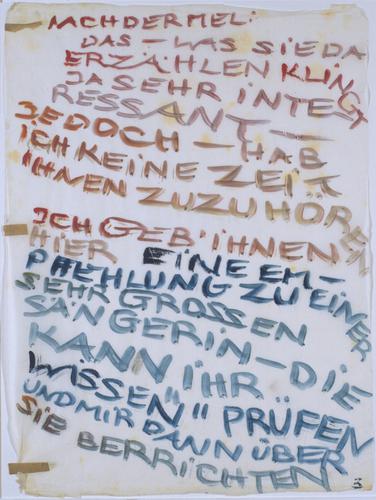 NACHDERMEL:
DAS – WAS SIE DA
ERZÄHLEN KLINGT
JA SEHR INTE-
RESSANT –
JEDOCH – HAB
ICH KEINE ZEIT
IHNEN ZUZUHÖREN
ICH GEB' IHNEN
HIER EINE EM-
PFEHLUNG ZU EINER
SEHR GROSSEN
SÄNGERIN – DIE
KANN IHR
WISSEN" PRÜFEN
UND MIR DANN ÜBER
SIE BERRICHTEN
3